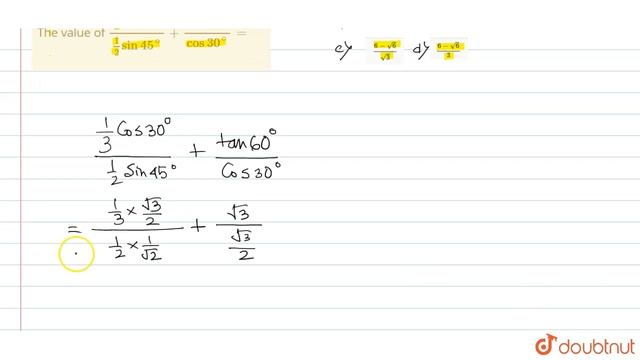 The value of + =
1/2 sin 45° cos 30°
c) 6-√6/√3 d) 6-√6/3
1/3 Cos 30° / 1/2 Sin 45° + tan 60° / Cos 30°
= 1/3 × √3/2 / 1/2 × 1/√2 + √3 / √3/2
doubtnut